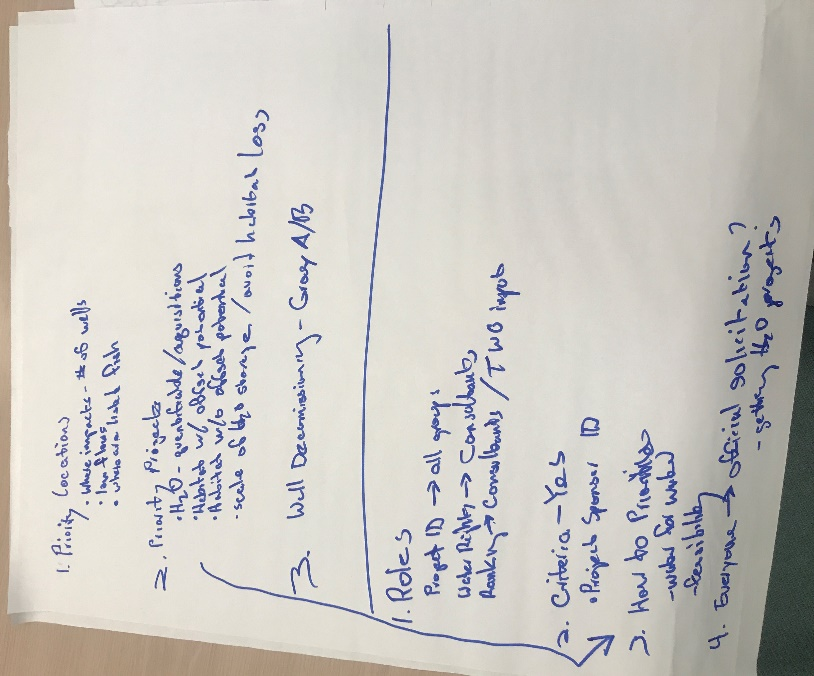 1. Priority Locations
• where impacts - # of wells
• low flows
• where are listed fish
2. Priority Projects
• H2O - quantifiable/aquisitions
• Habitat w/ offset potential
• Habitat w/o offset potential
- scale of H2O storage / avoid habitat loss
3. Well Decommissioning - Group A/B
1. Roles
Project ID → all groups
Water Rights → Consultants
Ranking → Consultants / TWG input
2. Criteria - Yes
• Project Sponsor ID
3. How to Prioritize
- water for water
- feasibility
4. Everyone → Official solicitation?
- getting H2O projects